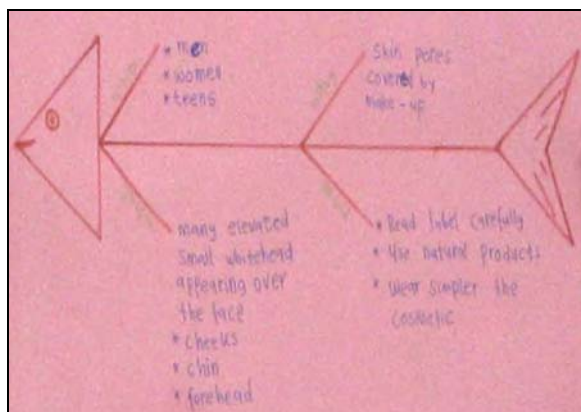 * men
* women
* teens
Skin pores
covered by
Make-up
many elevated
small whitehead
appearing over
the face
* cheeks
* chin
* forehead
* Read label carefully
* Use natural products
* Wear simpler the
cosmetic